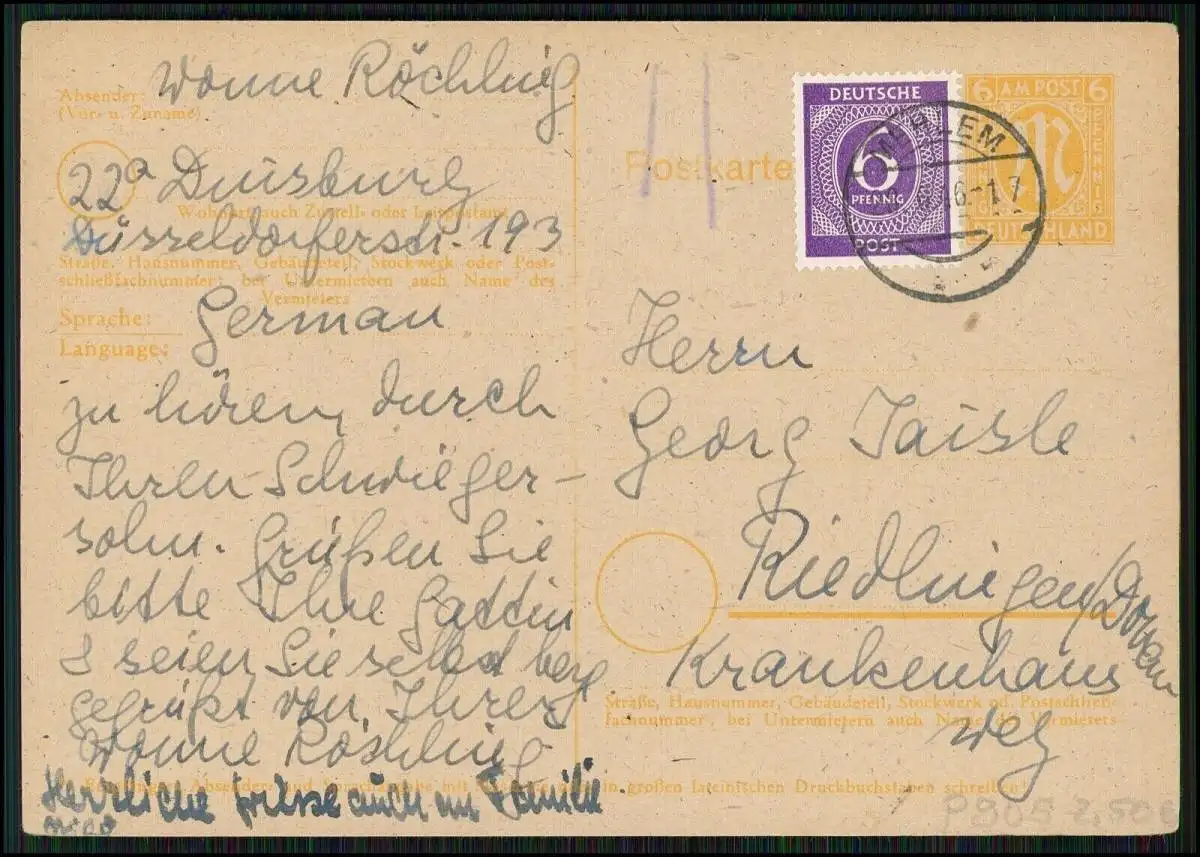 Absender: Wonne Röchling
(Vor- u. Zuname)
22a Duisburg
Wohnort, auch Zustell- oder Leitpostamt
Düsseldorferstr. 193
Straße, Hausnummer, Gebäudeteil, Stockwerk oder Post-
schließfachnummer; bei Untermietern auch Name des
Vermieters
Sprache: German
Language:
zu hören, durch
Ihren Schwieger-
sohn. Grüßen Sie
bitte Ihre Gattin
& seien Sie selbst herzl
gegrüßt von Ihrer
Wonne Röchling
Herzliche Grüsse auch an Familie
Postkarte
DEUTSCHE
6
PFENNIG
POST
6 AM POST 6
PFENNIG
M
DEUTSCHLAND
Herrn
Georg Taisle
Riedlingen/Donau
Krankenhaus
weg
Straße, Hausnummer, Gebäudeteil, Stockwerk od. Postschließ-
fachnummer, bei Untermietern auch Name des Vermieters
Absender- und in großen lateinischen Druckbuchstaben schreiben!
P905 2,50€